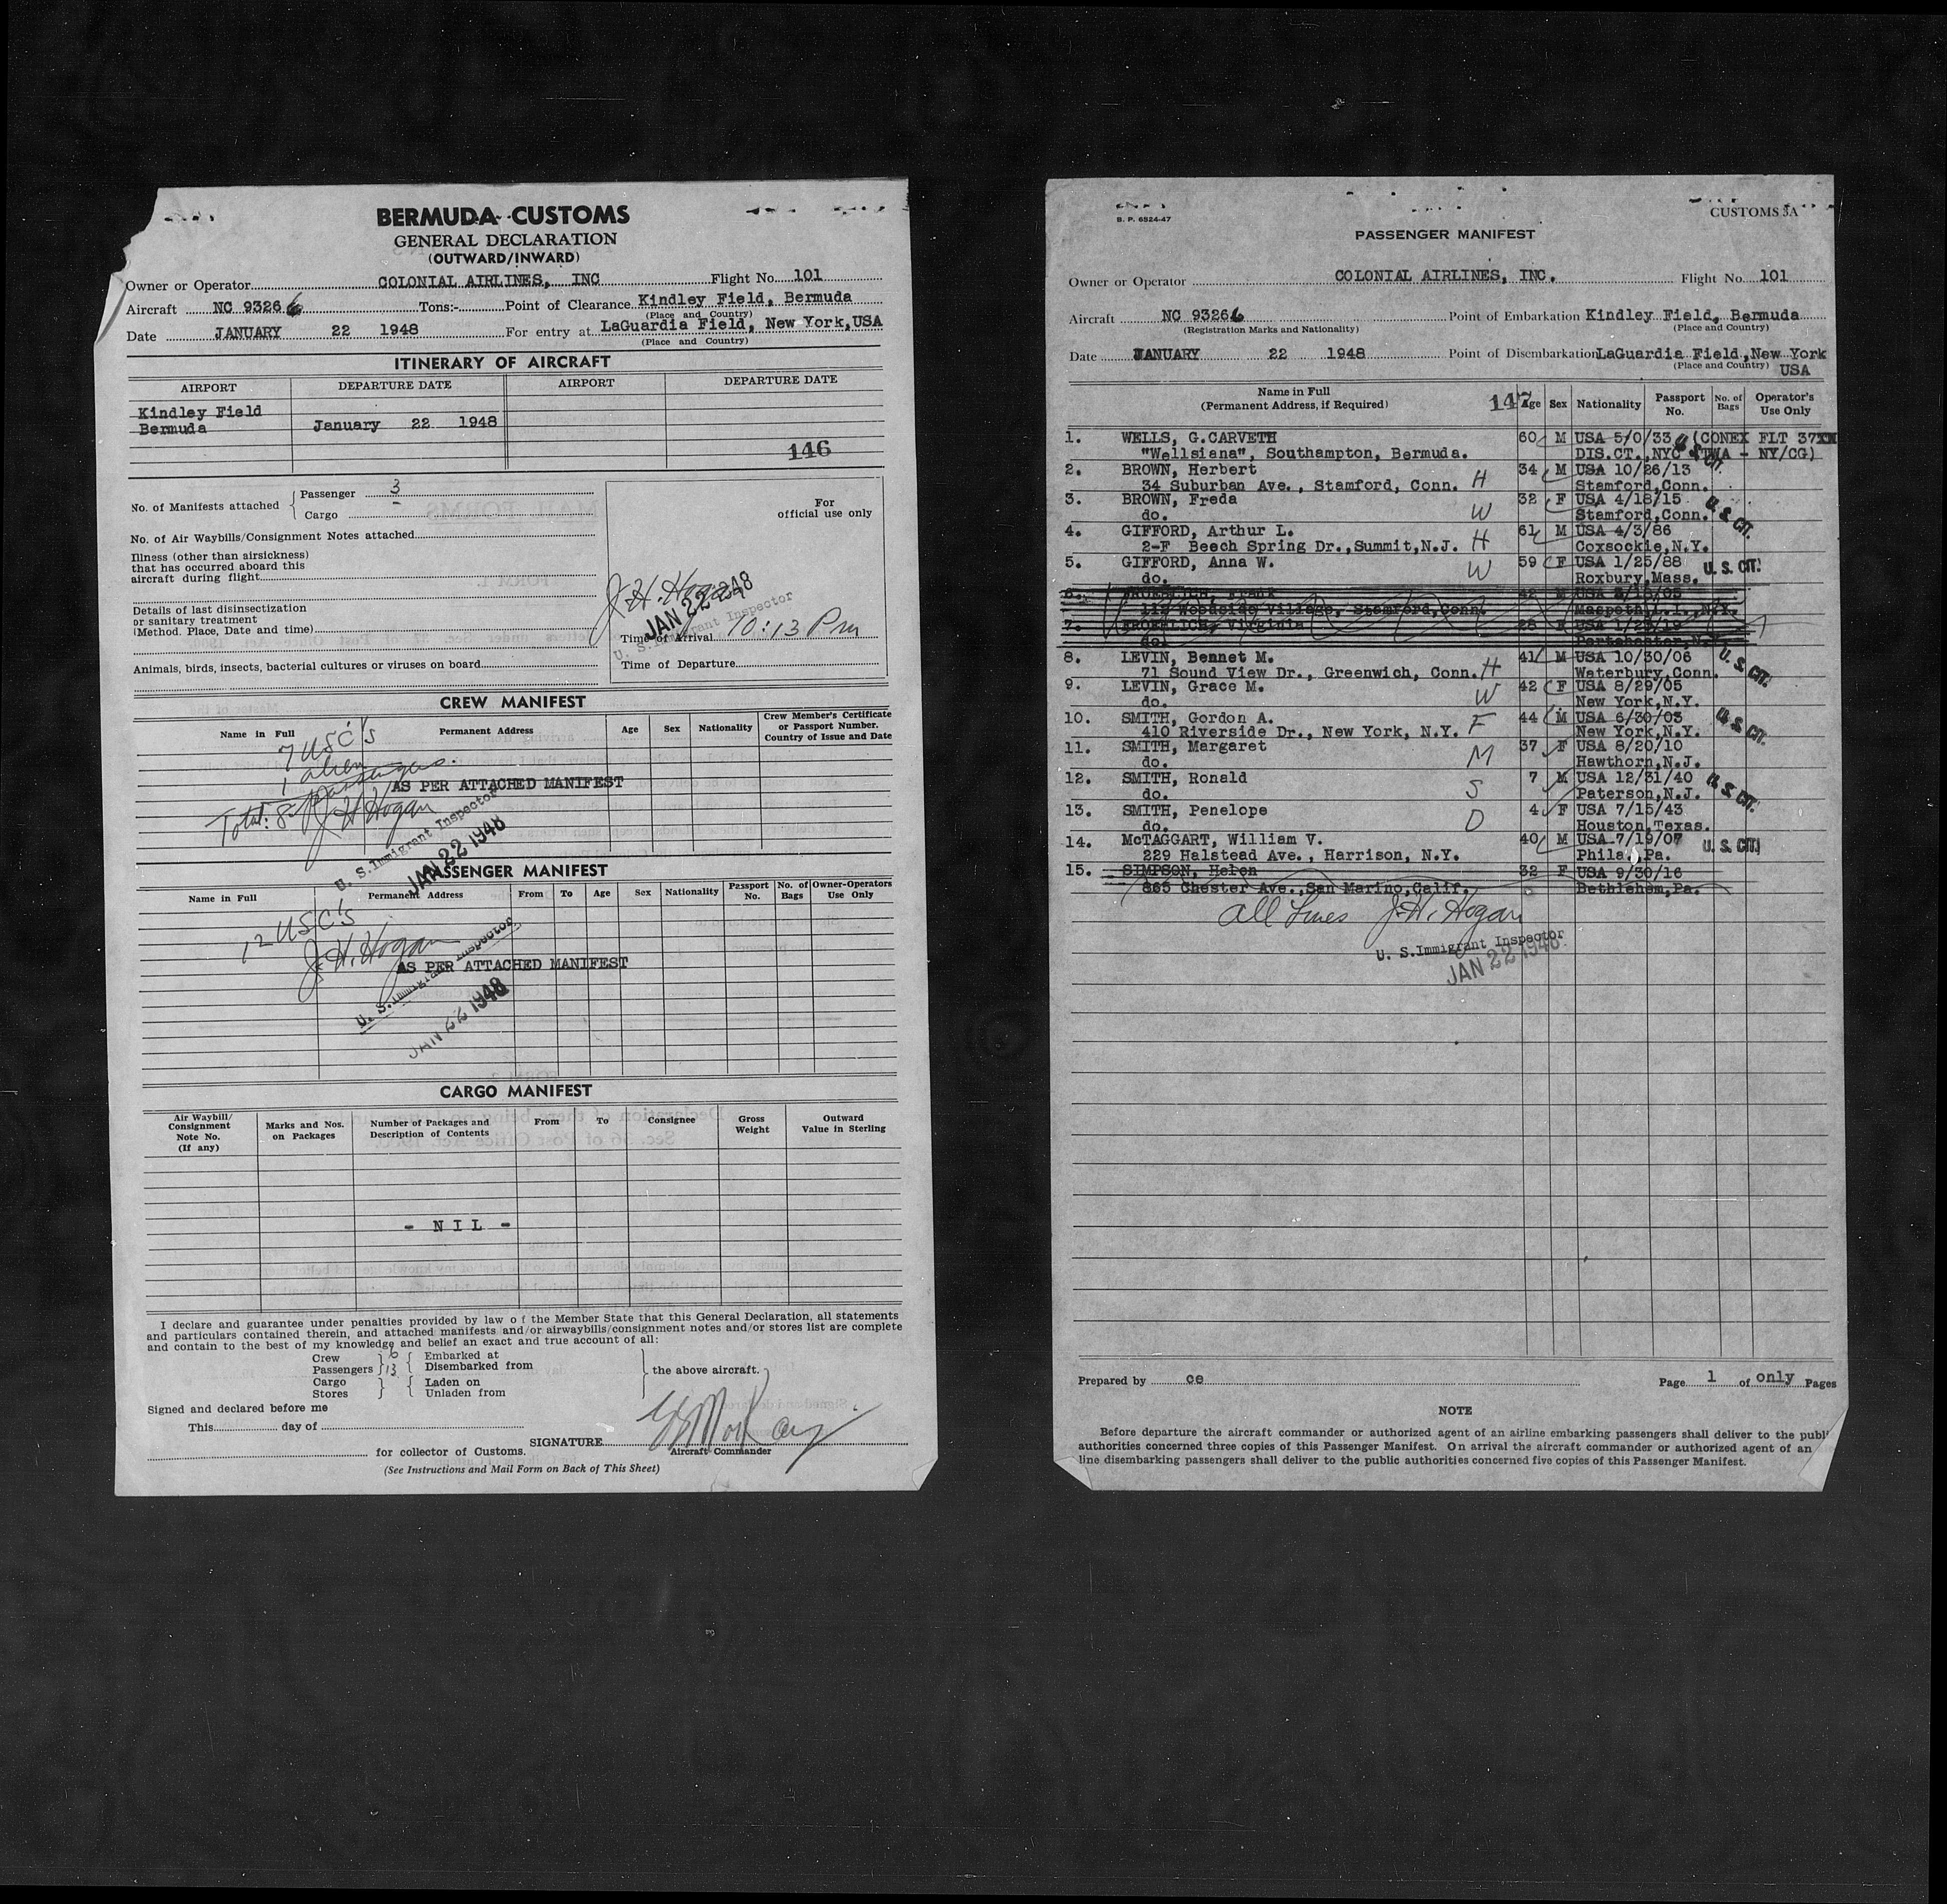 BERMUDA CUSTOMS
GENERAL DECLARATION
(OUTWARD/INWARD)
Owner or Operator COLONIAL AIRLINES, INC Flight No. 101
Aircraft NC 93266 Tons:- Point of Clearance Kindley Field, Bermuda
(Place and Country)
Date JANUARY 22 1948 For entry at LaGuardia Field, New York, USA
(Place and Country)
ITINERARY OF AIRCRAFT
AIRPORT DEPARTURE DATE AIRPORT DEPARTURE DATE
Kindley Field
Bermuda January 22 1948
146
No. of Manifests attached { Passenger 3
Cargo
For
official use only
No. of Air Waybills/Consignment Notes attached
Illness (other than airsickness)
that has occurred aboard this
aircraft during flight
Details of last disinsectization
or sanitary treatment
(Method. Place, Date and time)
J. H. Hogan
JAN 22 1948
U. S. Immigrant Inspector
Time of Arrival 10:13 Pm
Animals, birds, insects, bacterial cultures or viruses on board
Time of Departure
CREW MANIFEST
Name in Full Permanent Address Age Sex Nationality Crew Member's Certificate
or Passport Number.
Country of Issue and Date
7 USC's
1 alien
Total: 8 passengers.
AS PER ATTACHED MANIFEST
J H Hogan
U. S. Immigrant Inspector
JAN 22 1948
PASSENGER MANIFEST
Name in Full Permanent Address From To Age Sex Nationality Passport No. No. of Bags Owner-Operators Use Only
12 USC's
J. H. Hogan
AS PER ATTACHED MANIFEST
U. S. Immigrant Inspector
JAN 22 1948
CARGO MANIFEST
Air Waybill/
Consignment
Note No.
(If any)
Marks and Nos.
on Packages
Number of Packages and
Description of Contents
From To Consignee Gross
Weight
Outward
Value in Sterling
- N I L -
I declare and guarantee under penalties provided by law of the Member State that this General Declaration, all statements
and particulars contained therein, and attached manifests and/or airwaybills/consignment notes and/or stores list are complete
and contain to the best of my knowledge and belief an exact and true account of all:
Crew 6 Embarked at
Passengers 13 Disembarked from
the above aircraft.
Cargo Laden on
Stores Unladen from
Signed and declared before me
This day of
SIGNATURE
for collector of Customs. Aircraft Commander
(See Instructions and Mail Form on Back of This Sheet)
B. P. 6524-47
CUSTOMS 3A
PASSENGER MANIFEST
Owner or Operator COLONIAL AIRLINES, INC. Flight No. 101
Aircraft NC 93266 Point of Embarkation Kindley Field, Bermuda
(Registration Marks and Nationality) (Place and Country)
Date JANUARY 22 1948 Point of Disembarkation LaGuardia Field, New York
(Place and Country) USA
Name in Full
(Permanent Address, if Required)
147 Age Sex Nationality Passport No. No. of Bags Operator's Use Only
1. WELLS, G.CARVETH 60 M USA 5/0/33 (CONEX FLT 37
"Wellsiana", Southampton, Bermuda. DIS.CT., NYC TWA - NY/CG)
U. S. CIT.
2. BROWN, Herbert 34 M USA 10/26/13
34 Suburban Ave., Stamford, Conn. H Stamford,Conn.
3. BROWN, Freda 32 F USA 4/18/15
do. W Stamford,Conn.
U. S. CIT.
4. GIFFORD, Arthur L. 61 M USA 4/3/86
2-F Beech Spring Dr.,Summit,N.J. H Coxsockie,N.Y.
5. GIFFORD, Anna W. 59 F USA 1/25/88
do. W Roxbury,Mass.
U. S. CIT.
6. FROEHLICH, Frank 42 M USA
Woodside Village, Stamford,Conn. Maspeth,L.I.,N.Y.
7. FROEHLICH, Virginia 28 F USA
do. Portchester,N.Y.
8. LEVIN, Bennet M. 41 M USA 10/30/06
71 Sound View Dr., Greenwich, Conn. H Waterbury,Conn.
U. S. CIT.
9. LEVIN, Grace M. 42 F USA 8/29/05
do. W New York,N.Y.
10. SMITH, Gordon A. 44 M USA 6/30/03
410 Riverside Dr., New York, N.Y. F New York,N.Y.
U. S. CIT.
11. SMITH, Margaret 37 F USA 8/20/10
do. M Hawthorn,N.J.
12. SMITH, Ronald 7 M USA 12/31/40
do. S Paterson,N.J.
U. S. CIT.
13. SMITH, Penelope 4 F USA 7/15/43
do. D Houston,Texas.
14. McTAGGART, William V. 40 M USA 7/19/07
229 Halstead Ave., Harrison, N.Y. Phila.,Pa.
U. S. CIT.
15. SIMPSON, Helen 32 F USA 9/30/16
865 Chester Ave.,San Marino,Calif. Bethlehem,Pa.
all lines J. H. Hogan
U. S. Immigrant Inspector
JAN 22 1948
Prepared by ce Page 1 of only Pages
NOTE
Before departure the aircraft commander or authorized agent of an airline embarking passengers shall deliver to the publi
authorities concerned three copies of this Passenger Manifest. On arrival the aircraft commander or authorized agent of an
line disembarking passengers shall deliver to the public authorities concerned five copies of this Passenger Manifest.